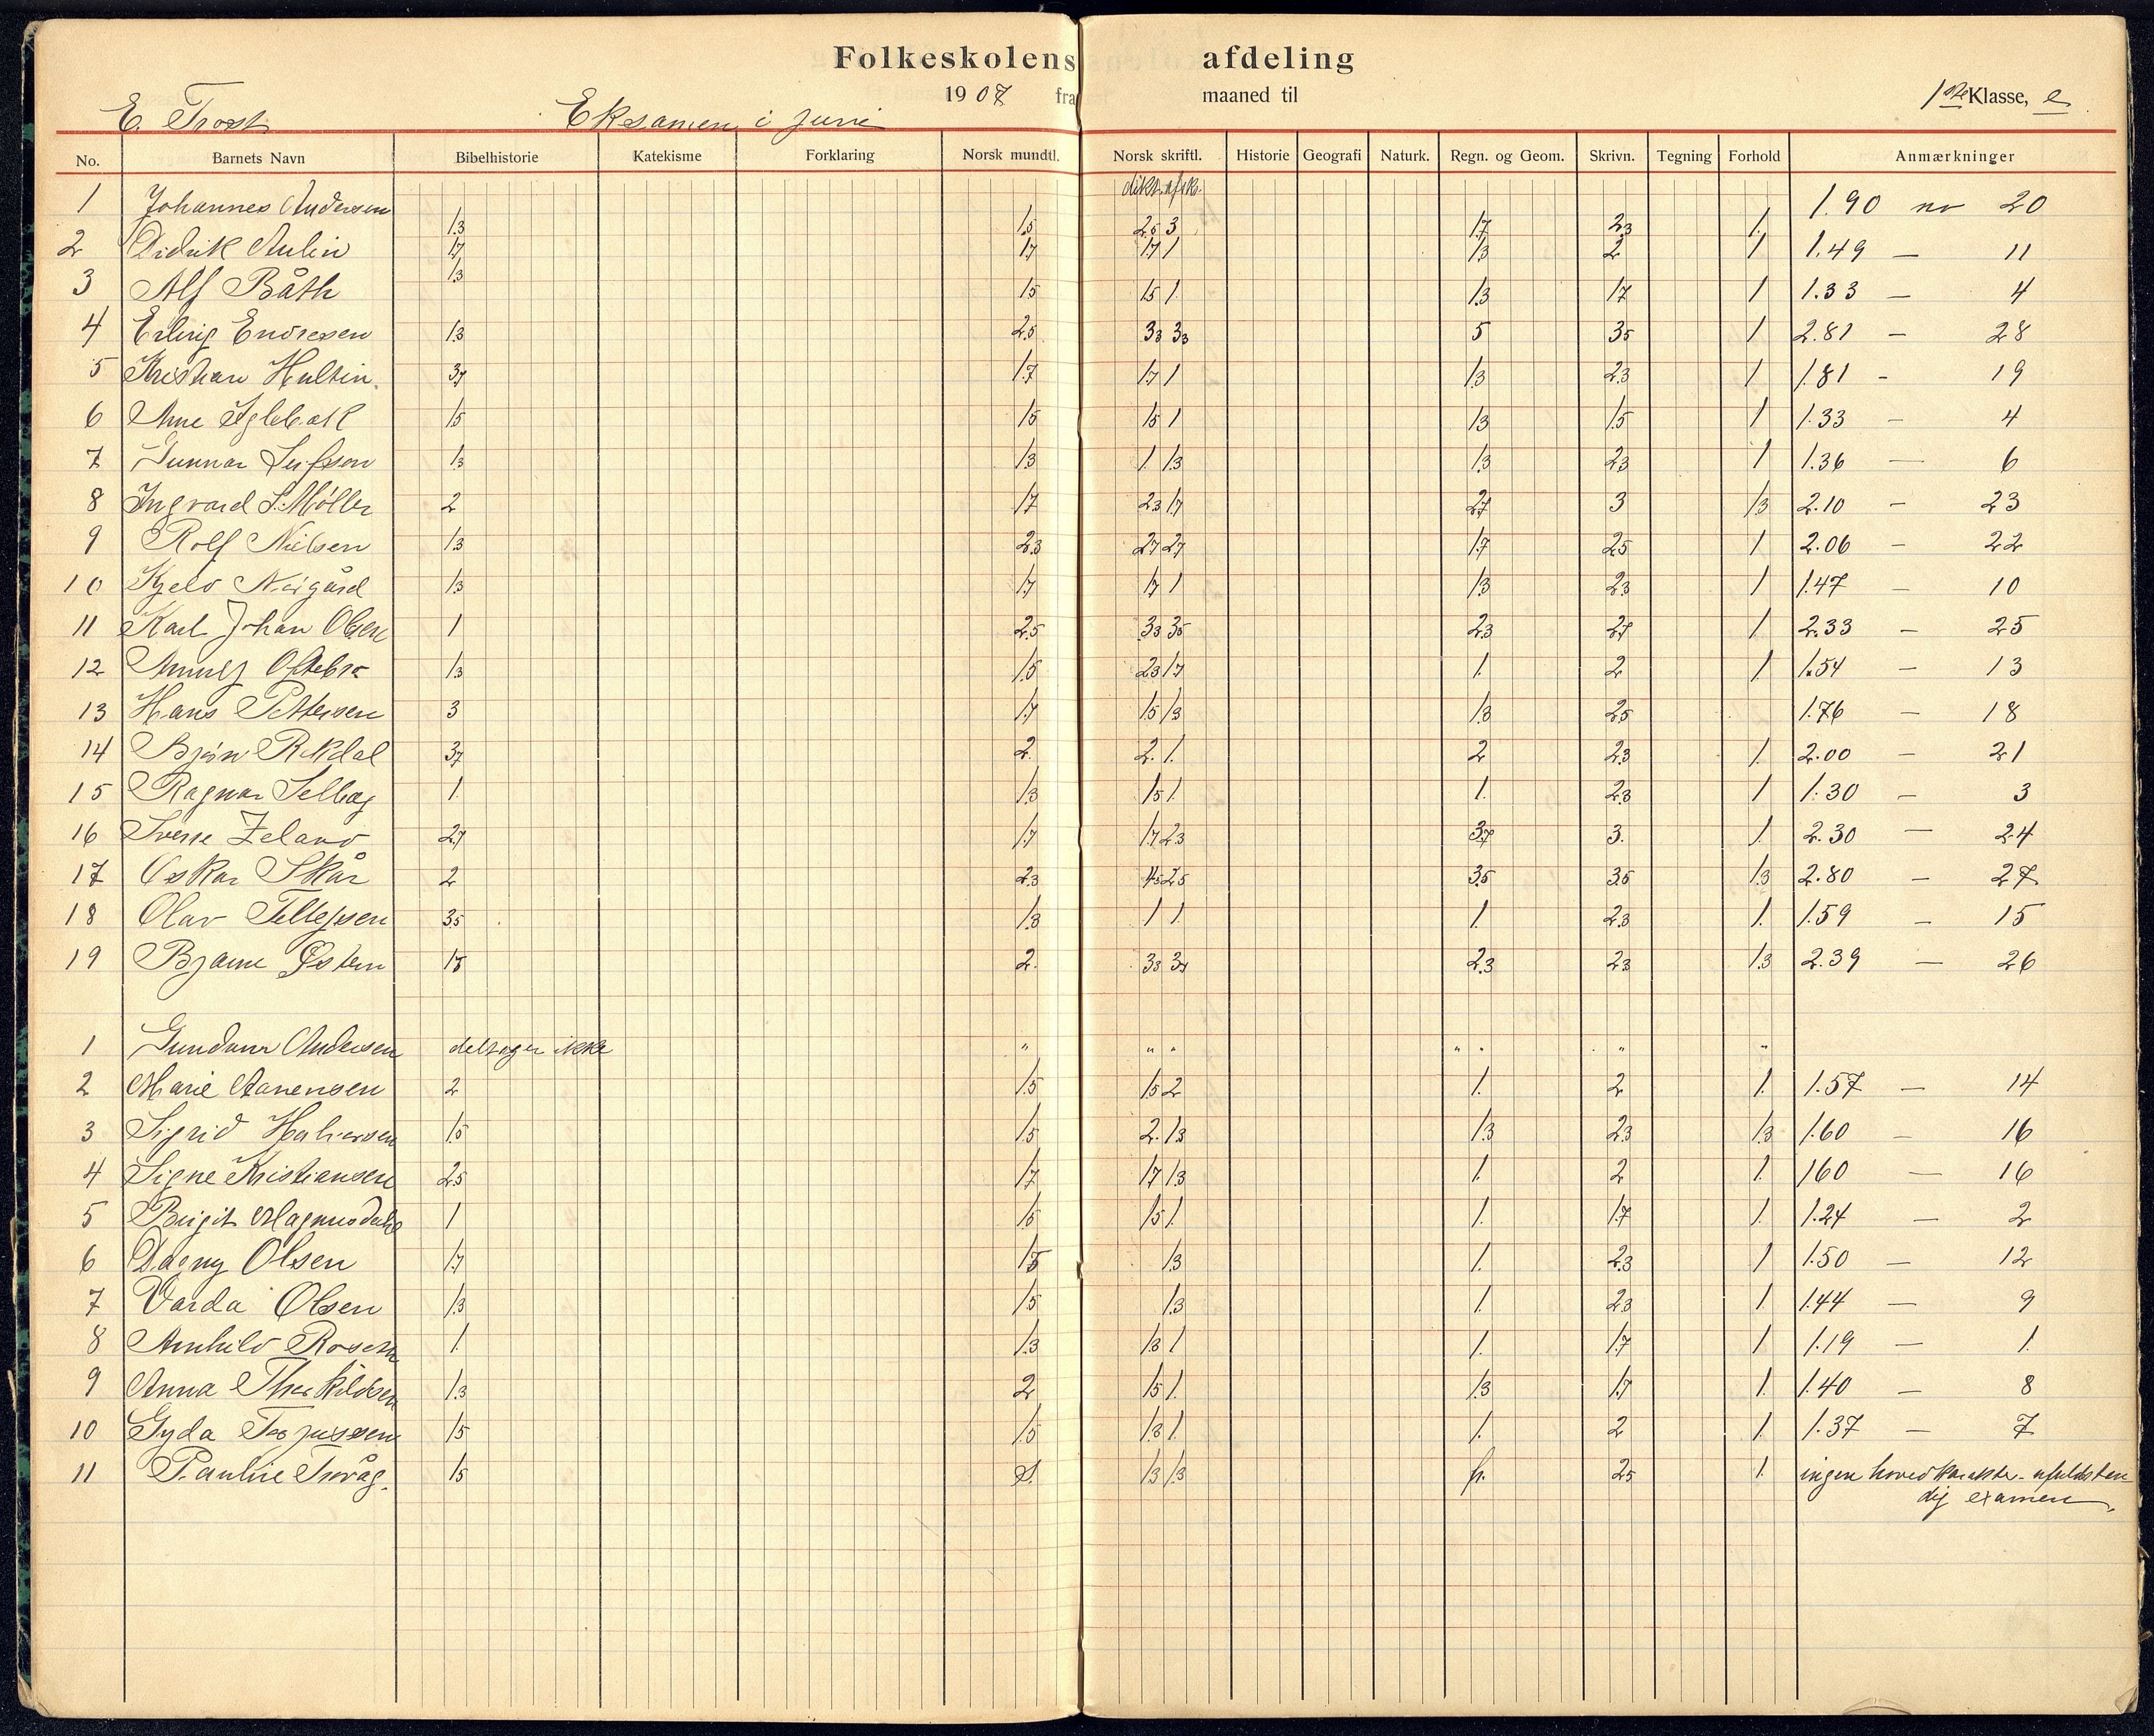 Folkeskolens afdeling
1907 fra maaned til 1ste Klasse, e
E. Trost Eksamen i juni
No. Barnets Navn Bibelhistorie Katekisme Forklaring Norsk mundtl. Norsk skriftl. Historie Geografi Naturk. Regn. og Geom. Skrivn. Tegning Forhold Anmærkninger
dikt. afsk.
1 Johannes Andersen 1.3 1.5 2.5 3 1.7 2.3 1. 1.90 nr 20
2 Didrik Aulin 1.7 1.7 1.7 1 1.3 2 1 1.49 — 11
3 Alf Båth 1.3 1.5 1.5 1. 1.3 1.7 1 1.33 — 4
4 Erling Endresen 1.3 2.5 3.3 3.3 5 3.5 1 2.81 — 28
5 Kristian Hultin. 3.7 1.7 1.7 1 1.3 2.3 1 1.81 - 19
6 Arne 1.5 1.5 1.5 1 1.3 1.5 1 1.33 — 4
7 Gunnar 1.3 1.3 1. 1.3 1.3 2.3 1 1.36 — 6
8 Ingvard S. Møller 2 1.7 2.3 1.7 2.7 3 1.3 2.10 — 23
9 Rolf Nielsen 1.3 2.3 2.7 2.7 1.7 2.5 1 2.06 — 22
10 Kjeld 1.3 1.7 1.7 1 1.3 2.3 1 1.47 — 10
11 Karl Johan Olsen 1 2.5 3.3 3.5 2.3 2.7 1 2.33 — 25
12 1.3 1.5 2.3 1.7 1. 2 1. 1.54 — 13
13 Hans Pettersen 3 1.7 1.5 1.3 1.3 2.5 1.76 — 18
14 Bjørn Rekdal 3.7 2. 2. 1. 2 2.3 1. 2.00 — 21
15 Ragnar Selbæg 1. 1.3 1.5 1. 1. 2.3 1 1.30 — 3
16 Sverre Zeland 2.7 1.7 1.7 2.3 3.7 3. 1. 2.30 — 24
17 Oskar Skår 2 2.3 4.5 2.5 3.5 3.5 1.3 2.80 — 27
18 Olav Tellefsen 3.5 1.3 1 1. 1. 2.3 1. 1.59 — 15
19 Bjarne Østern 1.5 2. 3.3 3.7 2.3 2.3 1.3 2.39 — 26
1 Gundara Andersen deltager ikke " " " " " " "
2 Marie Aanensen 2 1.5 1.5 2 1. 2 1. 1.57 — 14
3 Sigrid Halvorsen 1.5 1.5 2. 1.3 1.3 2.3 1.3 1.60 — 16
4 Signe Kristiansen 2.5 1.7 1.7 1.3 1. 2 1. 160 — 16
5 Birgit Magnusdahl 1 1.5 1.5 1. 1. 1.7 1. 1.24 — 2
6 Dagny Olsen 1.7 1.5 1.3 1. 2.3 1 1.50 — 12
7 Varda Olsen 1.3 1.5 1.3 1. 2.3 1. 1.44 — 9
8 Arnhild 1. 1.3 1.3 1 1. 1.7 1 1.19 — 1.
9 Anna Therkildsen 1.3 2 1.5 1. 1.3 1.7 1. 1.40 — 8
10 Gyda Terjussen 1.5 1.5 1.3 1. 1. 2 1. 1.37 — 7
11 Pauline 1.5 1.3 1.3 fr. 2.5 1. ingen hovedkarakter - ufuldsten
dig examen